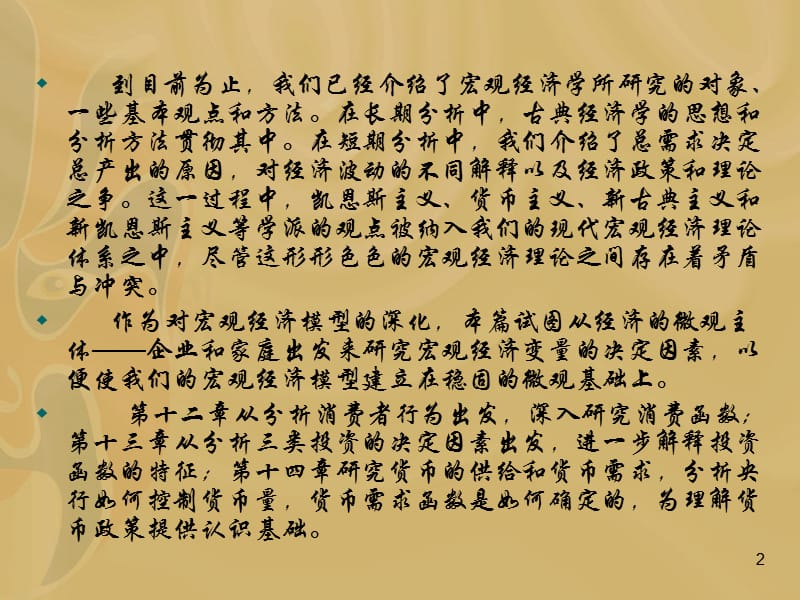 到目前为止，我们已经介绍了宏观经济学所研究的对象、
一些基本观点和方法。在长期分析中，古典经济学的思想和
分析方法贯彻其中。在短期分析中，我们介绍了总需求决定
总产出的原因，对经济波动的不同解释以及经济政策和理论
之争。这一过程中，凯恩斯主义、货币主义、新古典主义和
新凯恩斯主义等学派的观点被纳入我们的现代宏观经济理论
体系之中，尽管这形形色色的宏观经济理论之间存在着矛盾
与冲突。
作为对宏观经济模型的深化，本篇试图从经济的微观主
体——企业和家庭出发来研究宏观经济变量的决定因素，以
便使我们的宏观经济模型建立在稳固的微观基础上。
第十二章从分析消费者行为出发，深入研究消费函数；
第十三章从分析三类投资的决定因素出发，进一步解释投资
函数的特征；第十四章研究货币的供给和货币需求，分析央
行如何控制货币量，货币需求函数是如何确定的，为理解货
币政策提供认识基础。
2